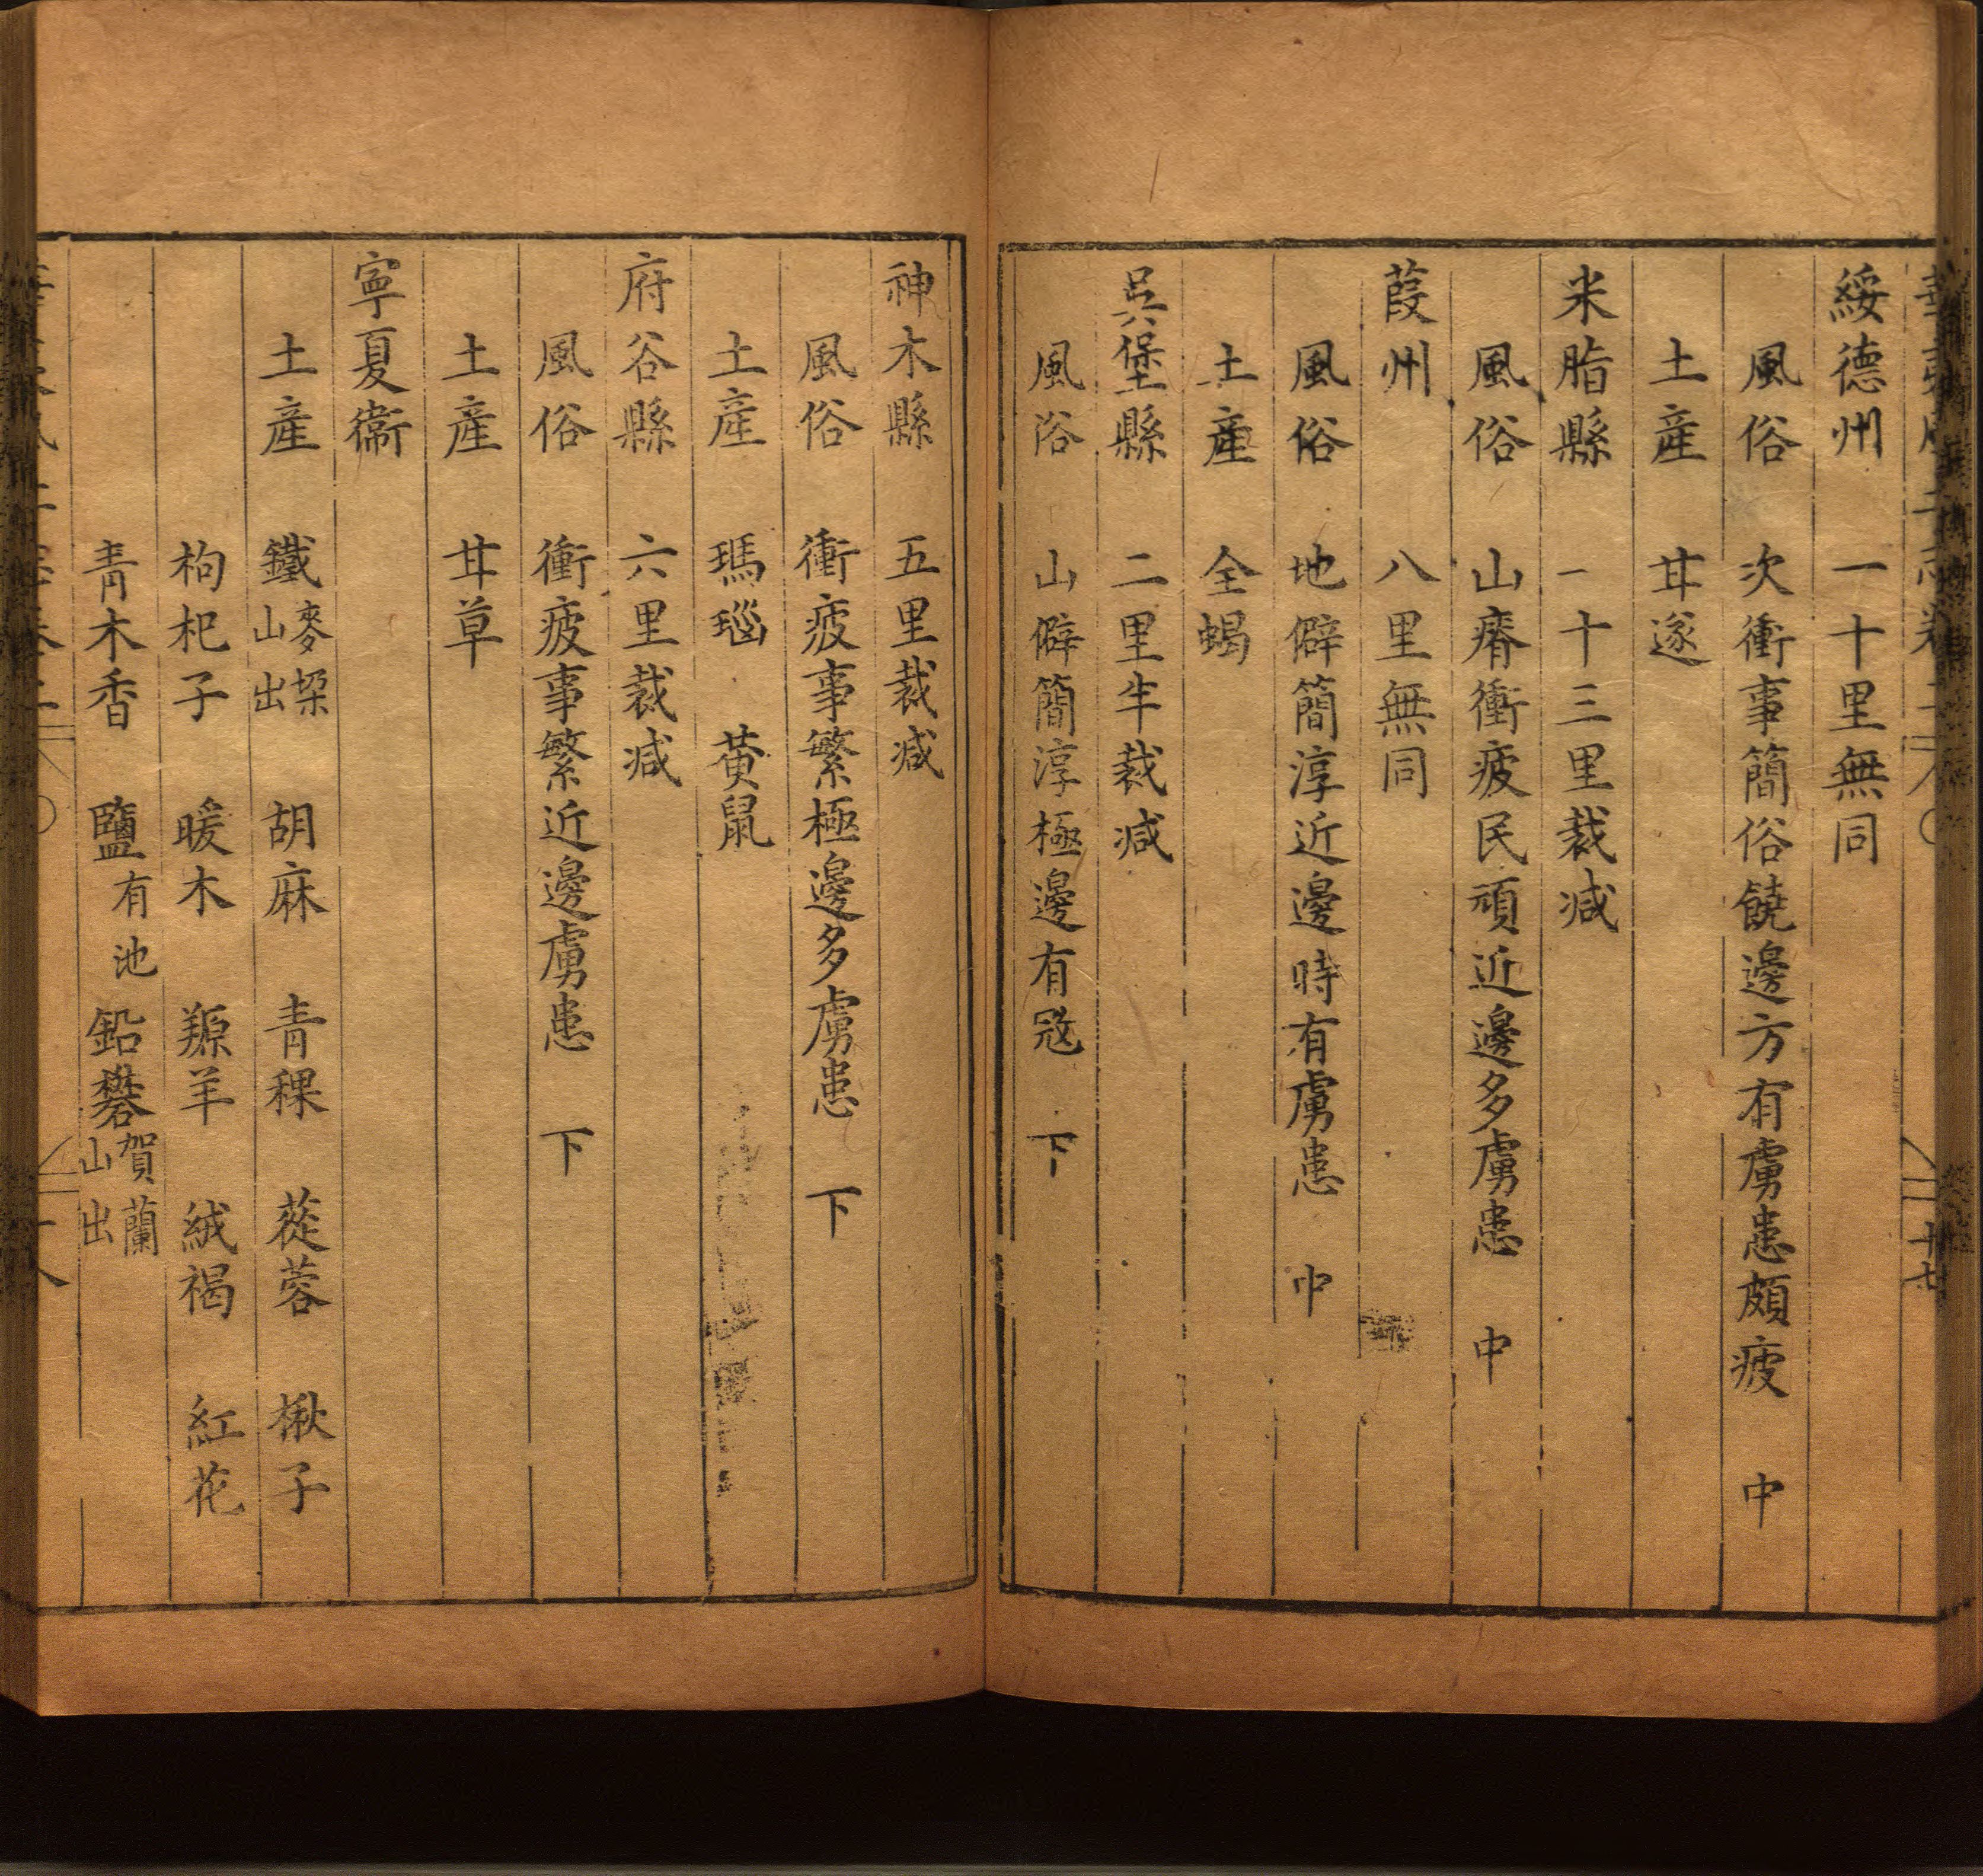 綏德州　一十里無同
風俗　次衝事簡俗饒邊方有虜患頗疲　中
土産　甘遂
米脂縣　一十三里裁減
風俗　山瘠衝疲民頑近邊多虜患　中
葭州　八里無同
風俗　地僻簡淳近邊時有虜患　中
土産　全蝎
吳堡縣　二里半裁減
風俗　山僻簡淳極邊有寇　下
十七
神木縣　五里裁減
風俗　衝疲事繁極邊多虜患　下
土産　瑪瑙　黄鼠
府谷縣　六里裁減
風俗　衝疲事繁近邊虜患　下
土産　甘草
寧夏衛
土産　鐵麥垜山出　胡麻　青稞　蓯蓉　楸子
枸杞子　暖木　羱羊　絨褐　紅花
青木香　鹽有池　鉛礬賀蘭山出